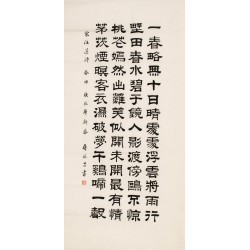 一春略無十日晴處處浮雲將雨行
野田春水碧于鏡人影渡傍鷗不驚
桃花嫣然出籬笑似開未開最有情
茅茨煙暝客衣濕破夢午雞啼一觀
宋汪藻詩